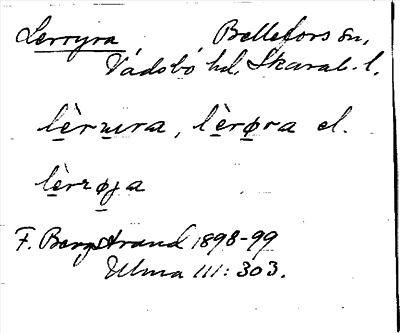 Lerryra Bellefors sn,
Vadsbo hd, Skarab. l.
lèrɯra, lèrøra el.
lèrrøra
F. Bergstrand 1898-99
Ulma 111: 303.